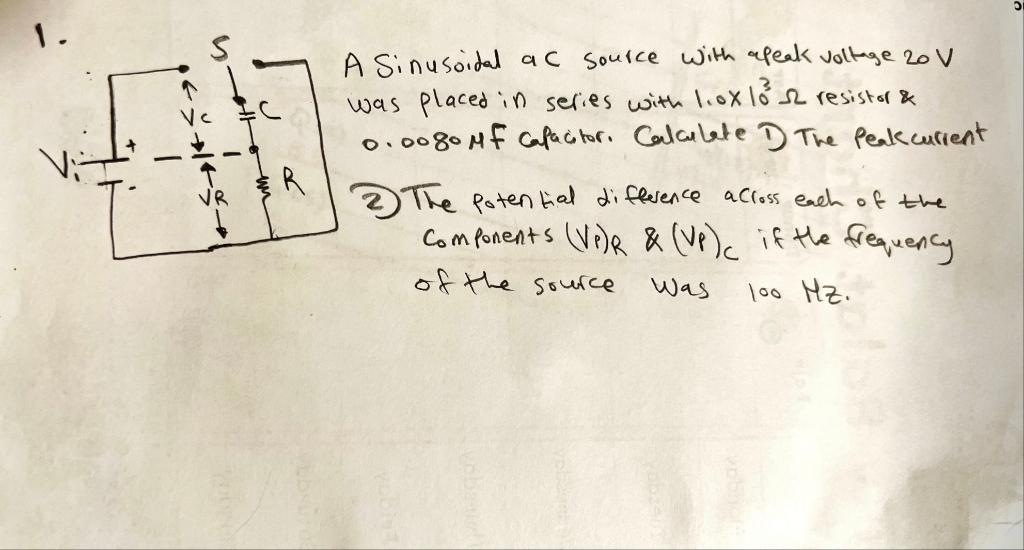 1.
S
A Sinusoidal ac source with apeak voltage 20 V
was placed in series with 1.0x10³ Ω resistor &
0.0080 Mf Capacitor. Calculate 1) The Peak current
2) The Potential difference across each of the
Components (Vp)R & (Vp)c if the frequency
of the source was 100 Hz.
C
Vc
Vi
+
-
VR
R